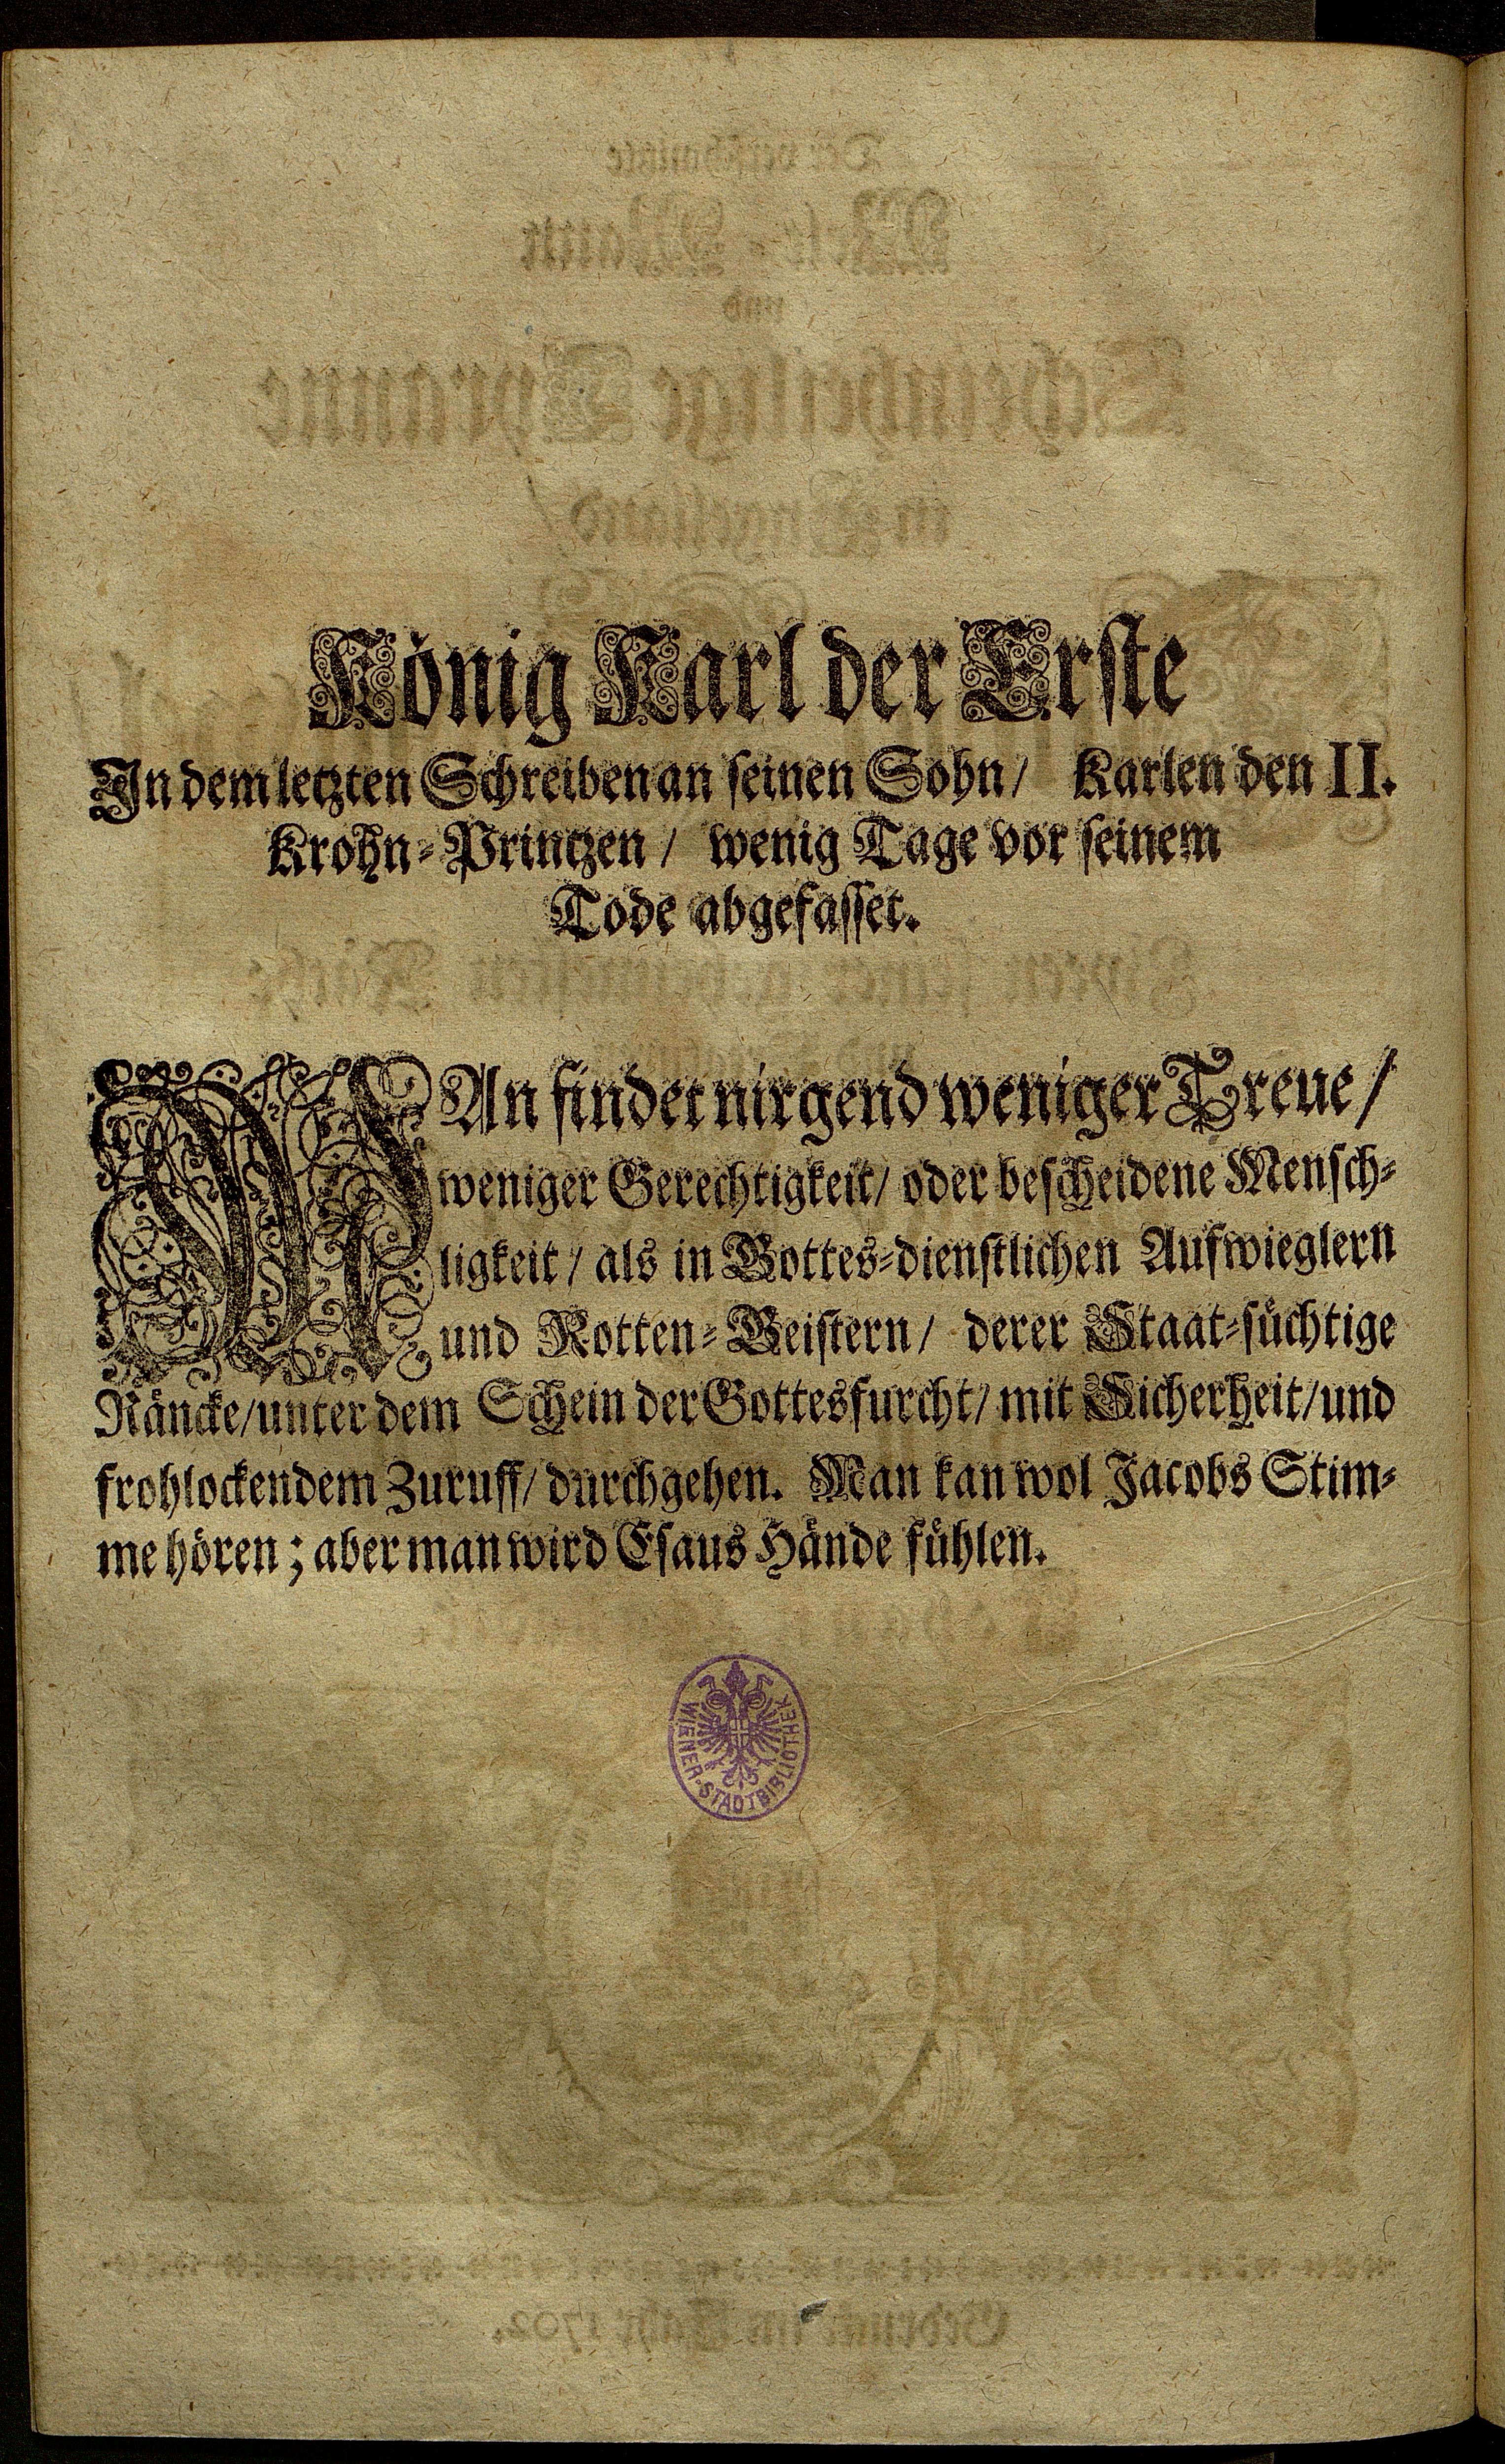 König Karl der Erste
In dem letzten Schreiben an seinen Sohn/ Karlen den II.
Krohn-Printzen / wenig Tage vor seinem
Tode abgefasset.
MAn findet nirgend weniger Treue /
weniger Gerechtigkeit/ oder bescheidene Mensch-
ligkeit / als in Gottes-dienstlichen Aufwieglern
und Rotten-Geistern / derer Staat-süchtige
Räncke/ unter dem Schein der Gottesfurcht/ mit Sicherheit/ und
frohlockendem Zuruff/ durchgehen. Man kan wol Jacobs Stim-
me hören ; aber man wird Esaus Hände fühlen.
WIENER-STADTBIBLIOTHEK